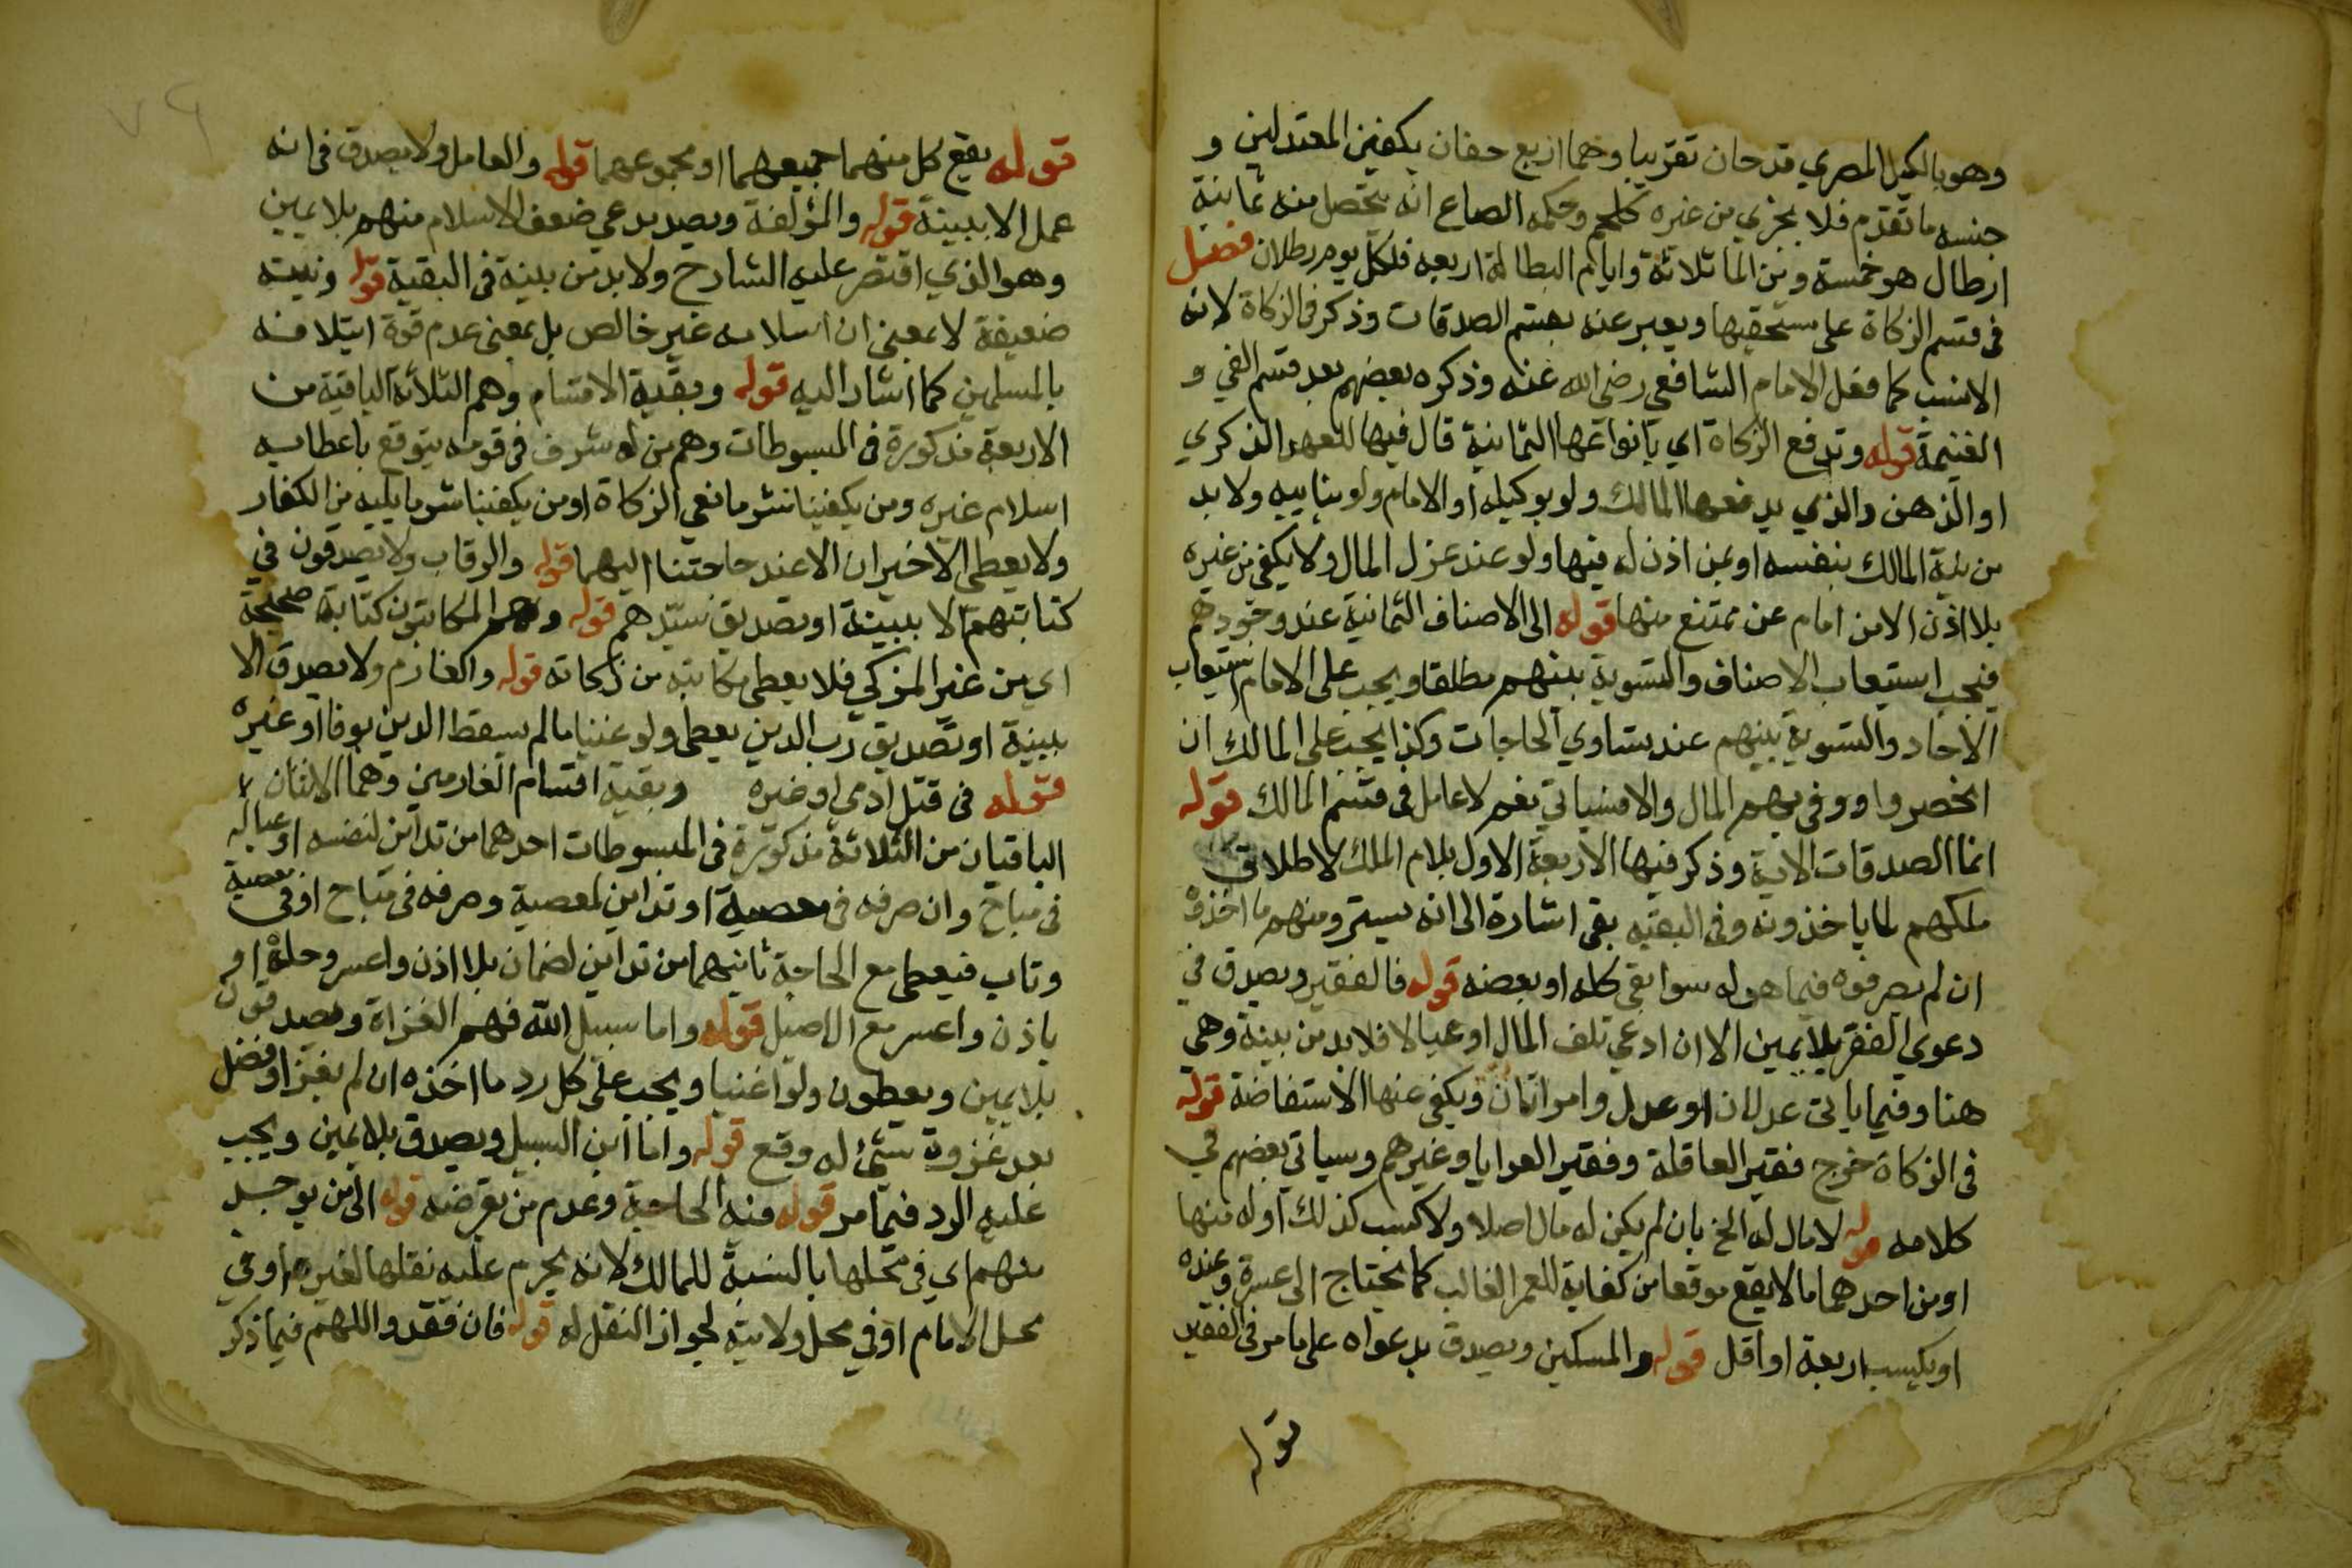 وهو بالكيل المصري قدحان تقريبا وهما اربع حفان بكفين المعتدلين و
جنسه ما تقدم فلا يجزي من غيره كلحم وحكمه الصاع انه يتحصل منه ثمانية
ارطال هو خمسة ومن الماء ثلاثة وايام البطالة اربعه فلكل يوم رطلان فصل
في قسم الزكاة على مستحقيها ويعبر عنه بقسم الصدقات وذكر في الزكاة لانه
الانسب كما فعل الامام الشافعي رضي الله عنه وذكره بعضهم بعد قسم الفي و
الغنيمة قوله وتدفع الزكاة اي بانواعها الثمانية قال فيها للعهد الذكري
او الذهن والذي يدفعها المالك ولو بوكيله او الامام ولو بنايبه ولا بد
من نية المالك بنفسه او بمن اذن له فيها ولو عند عزل المال ولا يكفي من غيره
بلا اذن الا من امام عن ممتنع منها قوله الى الاصناف الثمانية عند وجودهم
فيجب استيعاب الاصناف والتسوية بينهم مطلقا ويجب على الامام استيعاب
الاحاد والتسوية بينهم عند تساوي الحاجات وكذا يجب على المالك ان
انحصروا ووفى بهم المال والا فسياتي نعم لا عامل في قسم المالك قوله
انما الصدقات الاية وذكر فيها الاربعة الاول بلام الملك لاطلاق
ملكهم لما ياخذونه وفي البقيه بفي اشارة الى انه يسترد منهم ما اخذوه
ان لم يصرفوه فيما هو له سوا بقي كله او بعضه قوله فالفقير ويصدق في
دعوى الفقر بلا يمين الا ان ادعى تلف المال او عيالا فلا بد من بينة وهي
هنا وفيما ياتي عدلان او عدل وامراتان ويكفي عنها الاستفاضة قوله
في الزكاة خرج فقير العاقلة وفقير العرايا وغيرهم وسياتي بعضهم في
كلامه قوله لا مال له الخ بان لم يكن له مال اصلا ولا كسب كذلك او له منها
او من احدهما ما لا يقع موقعا من كفاية للعمر الغالب كما يحتاج الى عشرة وعنده
او يكسب اربعة او اقل قوله والمسكين ويصدق بدعواه على ما مر في الفقير
قوله
٧٩
قوله يقع كل منهما جميعهما او مجموعهما قوله والعامل ولا يصدق في انه
عمل الا ببينة قوله والمؤلفة ويصد مدعي ضعف الاسلام منهم بلا يمين
وهو الذي اقتصر عليه الشارح ولا بد من بينة في البقية قوله ونيته
ضعيفة لا بمعنى ان اسلامه غير خالص بل بمعنى عدم قوة ايتلافه
بالمسلمين كما اشار اليه قوله وبقية الاقسام وهم الثلاثة الباقية من
الاربعة مذكورة في المبسوطات وهم من له شرف في قومه يتوقع باعطايه
اسلام غيره ومن يكفينا شر مانعي الزكاة او من يكفينا شر ما يليه من الكفار
ولا يعطى الاخيران الا عند حاجتنا اليهما قوله والرقاب ولا يصدقون في
كتابتهم الا ببينة او بصديق سيدهم قوله وهم المكاتبون كتابة صحيحة
اي من غير المزكي فلا يعطى مكاتبه من زكاته قوله والغارم ولا يصدق الا
ببينة او تصديق رب الدين يعطى ولو غنيا ما لم يسقط الدين بوفا او غيره
قوله في قتل ادمي او غيره وبقية اقسام الغارمين وهما الاثنان
الباقيان من الثلاثة مذكورة في المبسوطات احدهما من تداين لنفسه او عياله
في مباح وان صرفه في معصية او تداين لمعصية وصرفه في مباح او في معصية
وتاب فيعطى مع الحاجة ثانيهما من تداين لضمان بلا اذن واعسر وحلة او
باذن واعسر مع الاصيل قوله واما سبيل الله فهم الغزاة ويصدقون
بلا يمين ويعطون ولو اغنيا ويجب على كل رد ما اخذه ان لم يغز او فضل
بعد غزوه شئ له وقع قوله واما ابن السبيل ويصدق بلا يمين ويجب
عليه الرد فيما مر قوله فيه الحاجة وعدم من يقرضه قوله الى من يوجد
منهم اي في محلها بالنسبة للمالك لانه يحرم عليه نقلها لغيره او في
محل الامام او في محل ولايته لجواز النقل له قوله فان فقدوا اللهم فيما ذكر